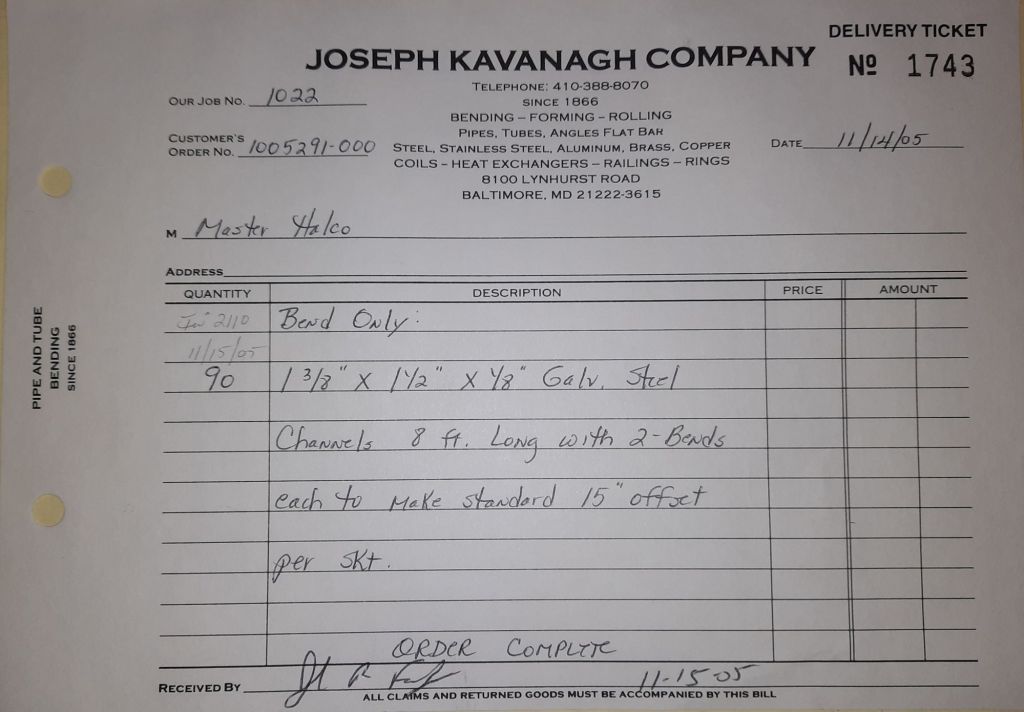 DELIVERY TICKET
JOSEPH KAVANAGH COMPANY
Nº 1743
TELEPHONE: 410-388-8070
OUR JOB NO. 1022
SINCE 1866
BENDING – FORMING – ROLLING
PIPES, TUBES, ANGLES FLAT BAR
CUSTOMER'S
ORDER NO. 1005291-000
STEEL, STAINLESS STEEL, ALUMINUM, BRASS, COPPER
DATE 11/14/05
COILS – HEAT EXCHANGERS – RAILINGS – RINGS
8100 LYNHURST ROAD
BALTIMORE, MD 21222-3615
M Master Halco
ADDRESS
QUANTITY DESCRIPTION PRICE AMOUNT
2110 Bend Only:
11/15/05
90 1 3/8" X 1 1/2" X 1/8" Galv. Steel
Channels 8 ft. Long with 2-Bends
each to Make Standard 15" offset
per skt.
ORDER COMPLETE
RECEIVED BY 11-15-05
ALL CLAIMS AND RETURNED GOODS MUST BE ACCOMPANIED BY THIS BILL
PIPE AND TUBE
BENDING
SINCE 1866